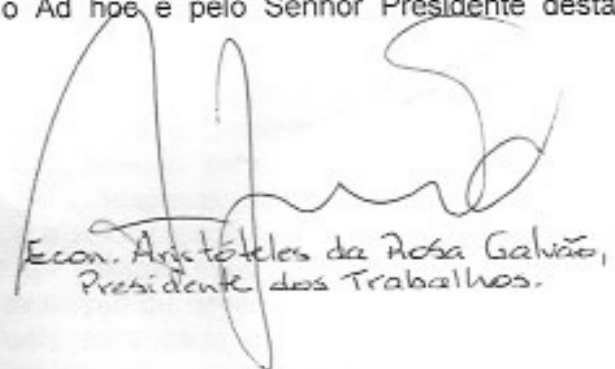 o Ad hoc e pelo Senhor Presidente desta
Econ. Aristóteles da Rosa Galvão,
Presidente dos Trabalhos.